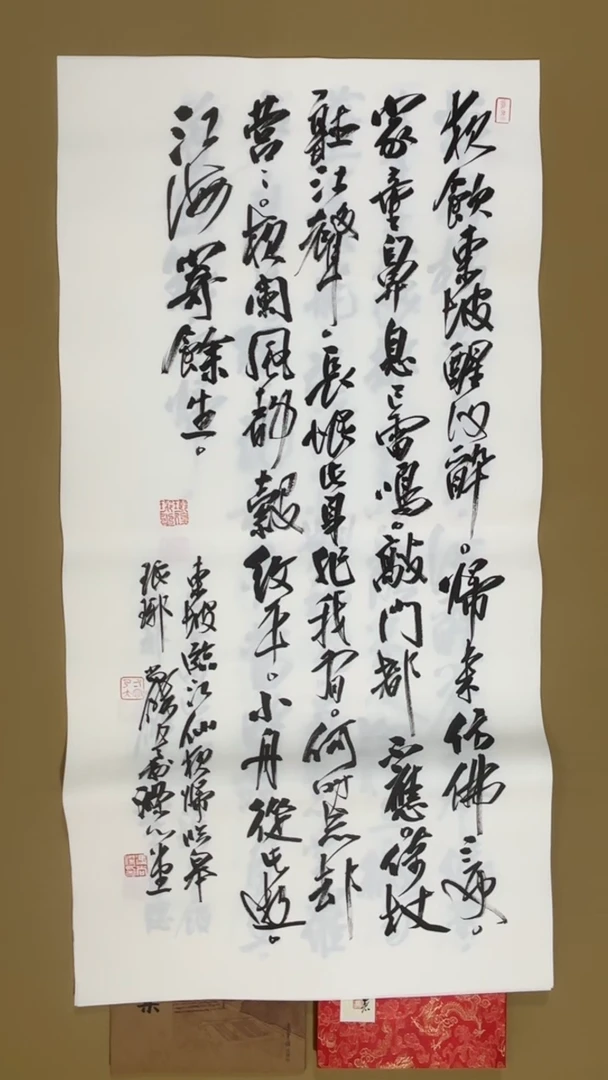 夜飲東坡醒復醉。歸來仿佛三更。
家童鼻息已雷鳴。敲門都不應。倚杖
聽江聲。長恨此身非我有。何時忘却
營〻。夜闌風靜縠紋平。小舟從此逝。
江海寄餘生。
東坡臨江仙夜歸臨皋
琅琊